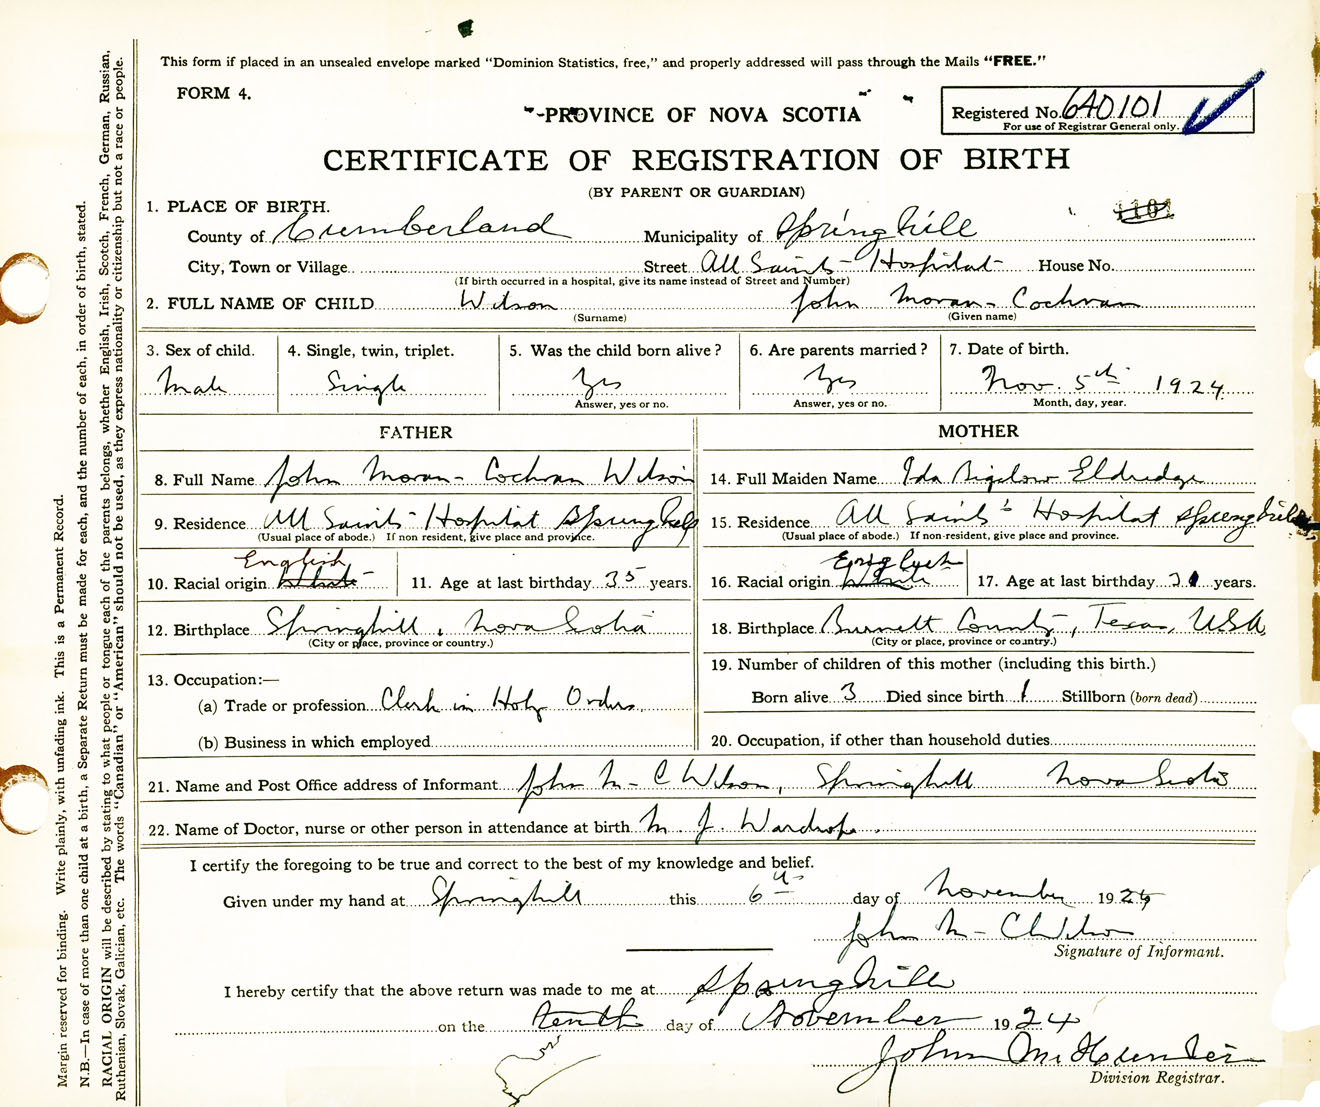 This form if placed in an unsealed envelope marked "Dominion Statistics, free," and properly addressed will pass through the Mails "FREE."
FORM 4.
PROVINCE OF NOVA SCOTIA
Registered No. 640101
For use of Registrar General only.
CERTIFICATE OF REGISTRATION OF BIRTH
(BY PARENT OR GUARDIAN)
1. PLACE OF BIRTH.
County of Cumberland Municipality of Springhill
City, Town or Village Street All Saints Hospital House No.
(If birth occurred in a hospital, give its name instead of Street and Number)
2. FULL NAME OF CHILD Wilson John Moran Cochran
(Surname) (Given name)
3. Sex of child. 4. Single, twin, triplet. 5. Was the child born alive? 6. Are parents married? 7. Date of birth.
Male Single Yes Yes Nov. 5th 1924
Answer, yes or no. Answer, yes or no. Month, day, year.
FATHER MOTHER
8. Full Name John Moran Cochran Wilson 14. Full Maiden Name Ida Bigelow Eldredge
9. Residence All Saints Hospital Springhill 15. Residence All Saint's Hospital Springhill
(Usual place of abode.) If non resident, give place and province. (Usual place of abode.) If non-resident, give place and province.
English English
10. Racial origin White 11. Age at last birthday 35 years. 16. Racial origin White 17. Age at last birthday years.
12. Birthplace Springhill, Nova Scotia 18. Birthplace Burnett County, Texas, USA
(City or place, province or country.) (City or place, province or country.)
13. Occupation:— 19. Number of children of this mother (including this birth.)
(a) Trade or profession Clerk in Holy Orders Born alive 3 Died since birth 1 Stillborn (born dead)
(b) Business in which employed 20. Occupation, if other than household duties
21. Name and Post Office address of Informant John M-C Wilson, Springhill Nova Scotia
22. Name of Doctor, nurse or other person in attendance at birth M. J. Wardrope.
I certify the foregoing to be true and correct to the best of my knowledge and belief.
Given under my hand at Springhill this 6th day of November 1924
John M- C Wilson
Signature of Informant.
I hereby certify that the above return was made to me at Springhill
on the tenth day of November 1924
John
Division Registrar.
Margin reserved for binding. Write plainly, with unfading ink. This is a Permanent Record.
N.B.—In case of more than one child at a birth, a Separate Return must be made for each, and the number of each, in order of birth, stated.
RACIAL ORIGIN will be described by stating to what people or tongue each of the parents belongs, whether English, Irish, Scotch, French, German, Russian,
Ruthenian, Slovak, Galician, etc. The words "Canadian" or "American" should not be used, as they express nationality or citizenship but not a race or people.